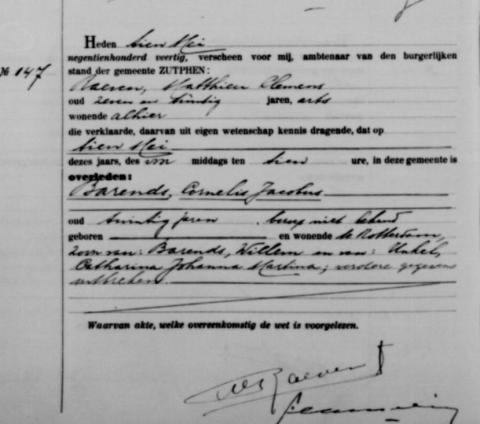 Heden tien Mei
negentienhonderd veertig, verscheen voor mij, ambtenaar van den burgerlijken
№ 147 stand der gemeente ZUTPHEN:
Raeven, Matthieu Clemens
oud zeven en twintig jaren, arts
wonende alhier
die verklaarde, daarvan uit eigen wetenschap kennis dragende, dat op
tien Mei
dezes jaars, des vm middags ten tien ure, in deze gemeente is
overleden:
Barends, Cornelis Jacobus
oud twintig jaren beroep niet bekend
geboren en wonende te Rotterdam,
zoon van: Barends, Willem en van: Unkel,
Catharina Johanna Martina; verdere gegevens
ontbreken
Waarvan akte, welke overeenkomstig de wet is voorgelezen.
Raeven